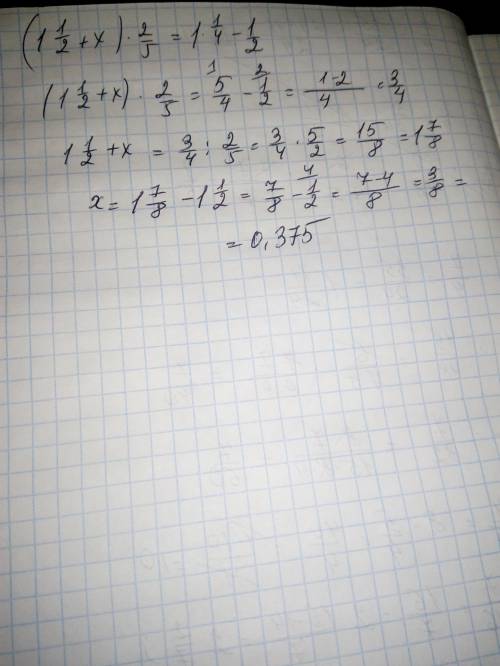 (1 1/2 + x) · 2/5 = 1 · 1/4 - 1/2
(1 1/2 + x) · 2/5 = 5/4 ¹ - 1/2 ² = 1-2/4 = 3/4
1 1/2 + x = 3/4 : 2/5 = 3/4 · 5/2 = 15/8 = 1 7/8
x = 1 7/8 - 1 1/2 = 7/8 - 1/2 ⁴ = 7-4/8 = 3/8 =
= 0,375